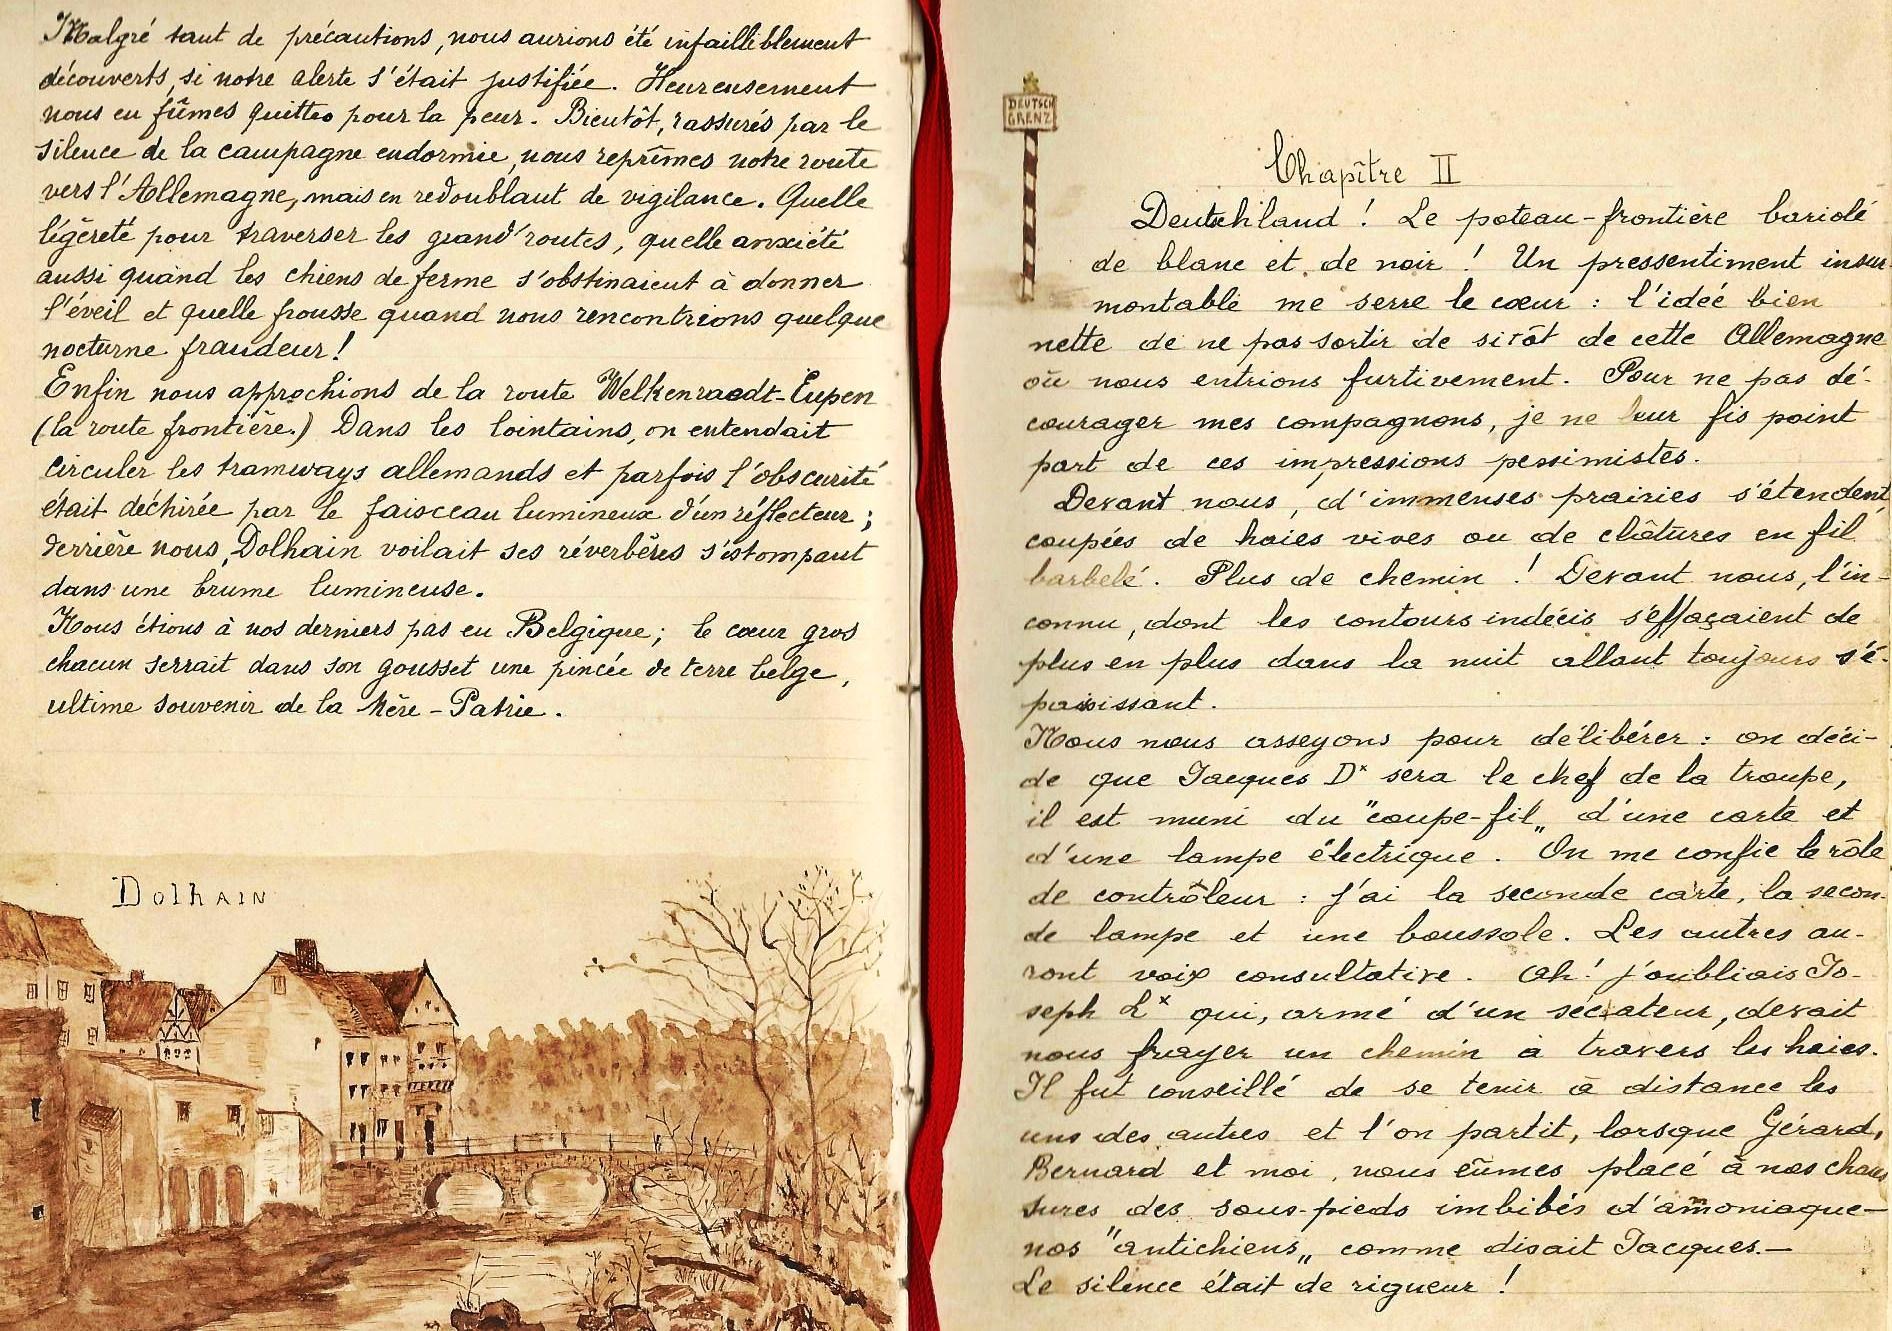 Malgré tant de précautions, nous aurions été infailliblement
découverts, si notre alerte s'était justifiée. Heureusement
nous en fûmes quittes pour la peur. Bientôt, rassurés par le
silence de la campagne endormie, nous reprîmes notre route
vers l'Allemagne, mais en redoublant de vigilance. Quelle
légèreté pour traverser les grand'routes, quelle anxiété
aussi quand les chiens de ferme s'obstinaient à donner
l'éveil et quelle frousse quand nous rencontrions quelque
nocturne fraudeur!
Enfin nous approchions de la route Welkenraedt-Eupen
(la route frontière.) Dans les lointains, on entendait
circuler les tramways allemands et parfois l'obscurité
était déchirée par le faisceau lumineux d'un réflecteur;
derrière nous, Dolhain voilait ses réverbères s'estompant
dans une brume lumineuse.
Nous étions à nos derniers pas en Belgique; le cœur gros
chacun serrait dans son gousset une pincée de terre belge,
ultime souvenir de la Mère-Patrie.
Dolhain
DEUTSCH
GRENZ
Chapître II
Deutschland! Le poteau-frontière bariolé
de blanc et de noir! Un pressentiment insur-
montable me serre le cœur: l'idée bien
nette de ne pas sortir de sitôt de cette Allemagne
où nous entrions furtivement. Pour ne pas dé-
courager mes compagnons, je ne leur fis point
part de ces impressions pessimistes.
Devant nous, d'immenses prairies s'étendent,
coupées de haies vives ou de clôtures en fil
barbelé. Plus de chemin! Devant nous, l'in-
connu, dont les contours indécis s'effaçaient de
plus en plus dans la nuit allant toujours s'é-
paississant.
Nous nous asseyons pour délibérer: on déci-
de que Jacques Dx sera le chef de la troupe,
il est muni du "coupe-fil„ d'une carte et
d'une lampe électrique. On me confie le rôle
de contrôleur: j'ai la seconde carte, la secon-
de lampe et une boussole. Les autres au-
ront voix consultative. Ah! j'oubliais Jo-
seph Lx qui, armé d'un sécateur, devait
nous frayer un chemin à travers les haies.
Il fut conseillé de se tenir à distance les
uns des autres et l'on partit, lorsque Gérard,
Bernard et moi, nous eûmes placé à nos chaus
sures des sous-pieds imbibés d'amoniaque-
nos "antichiens„ comme disait Jacques.-
Le silence était de rigueur!